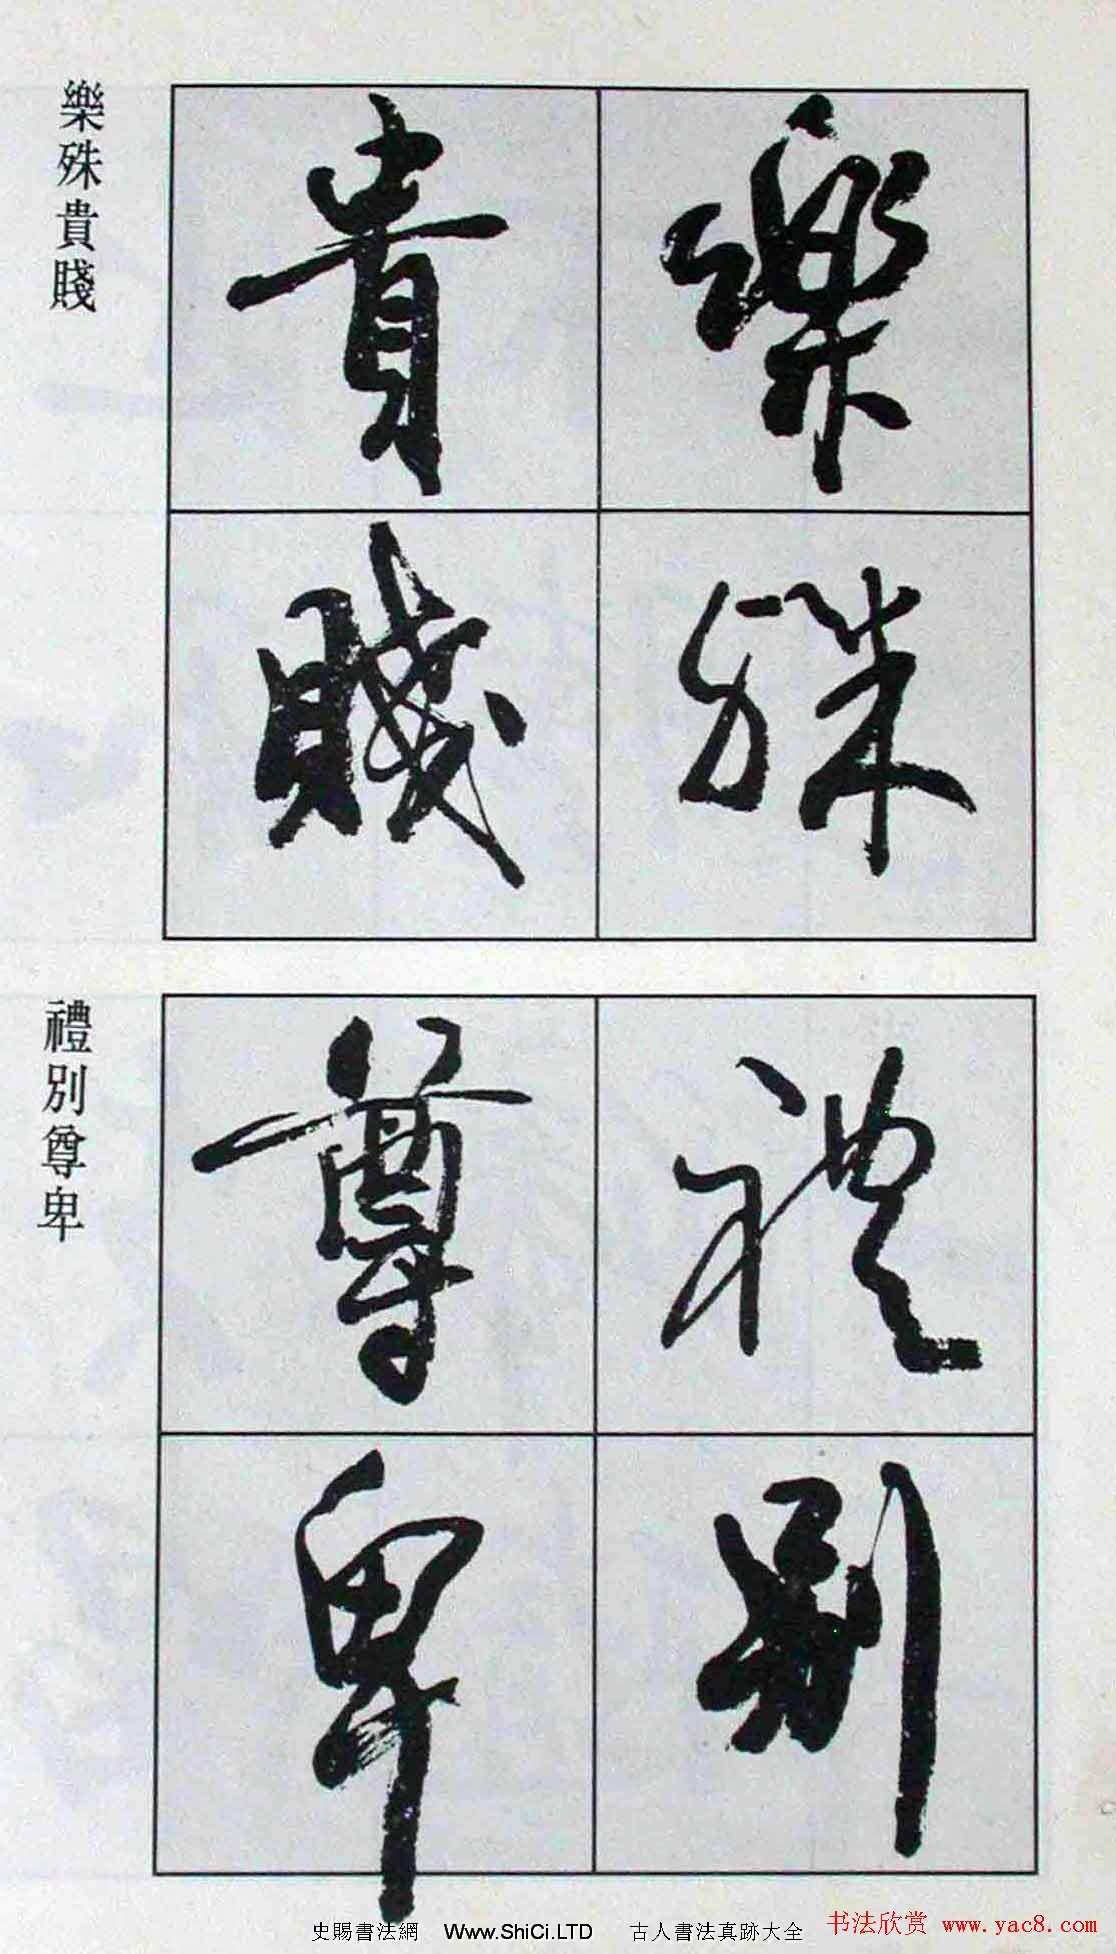 樂殊
貴賤
樂殊貴賤
禮別
尊卑
禮別尊卑
史賜書法網 Www.ShiCi.LTD 古人書法真跡大全
书法欣赏 www.yac8.com